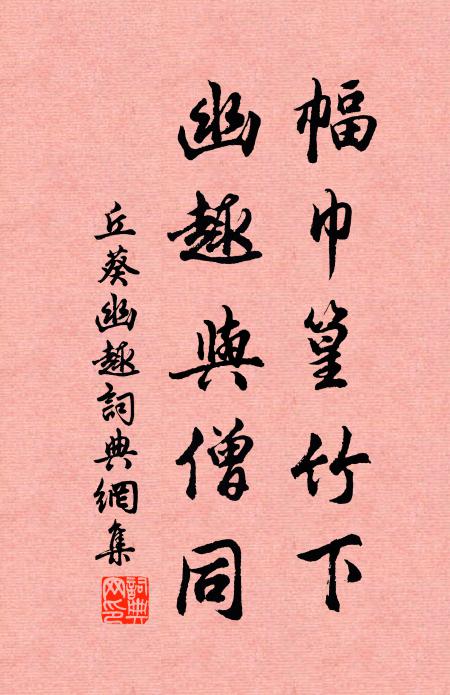 幅巾篁竹下
幽趣與僧同
丘葵幽趣詞典網集
詞典網印